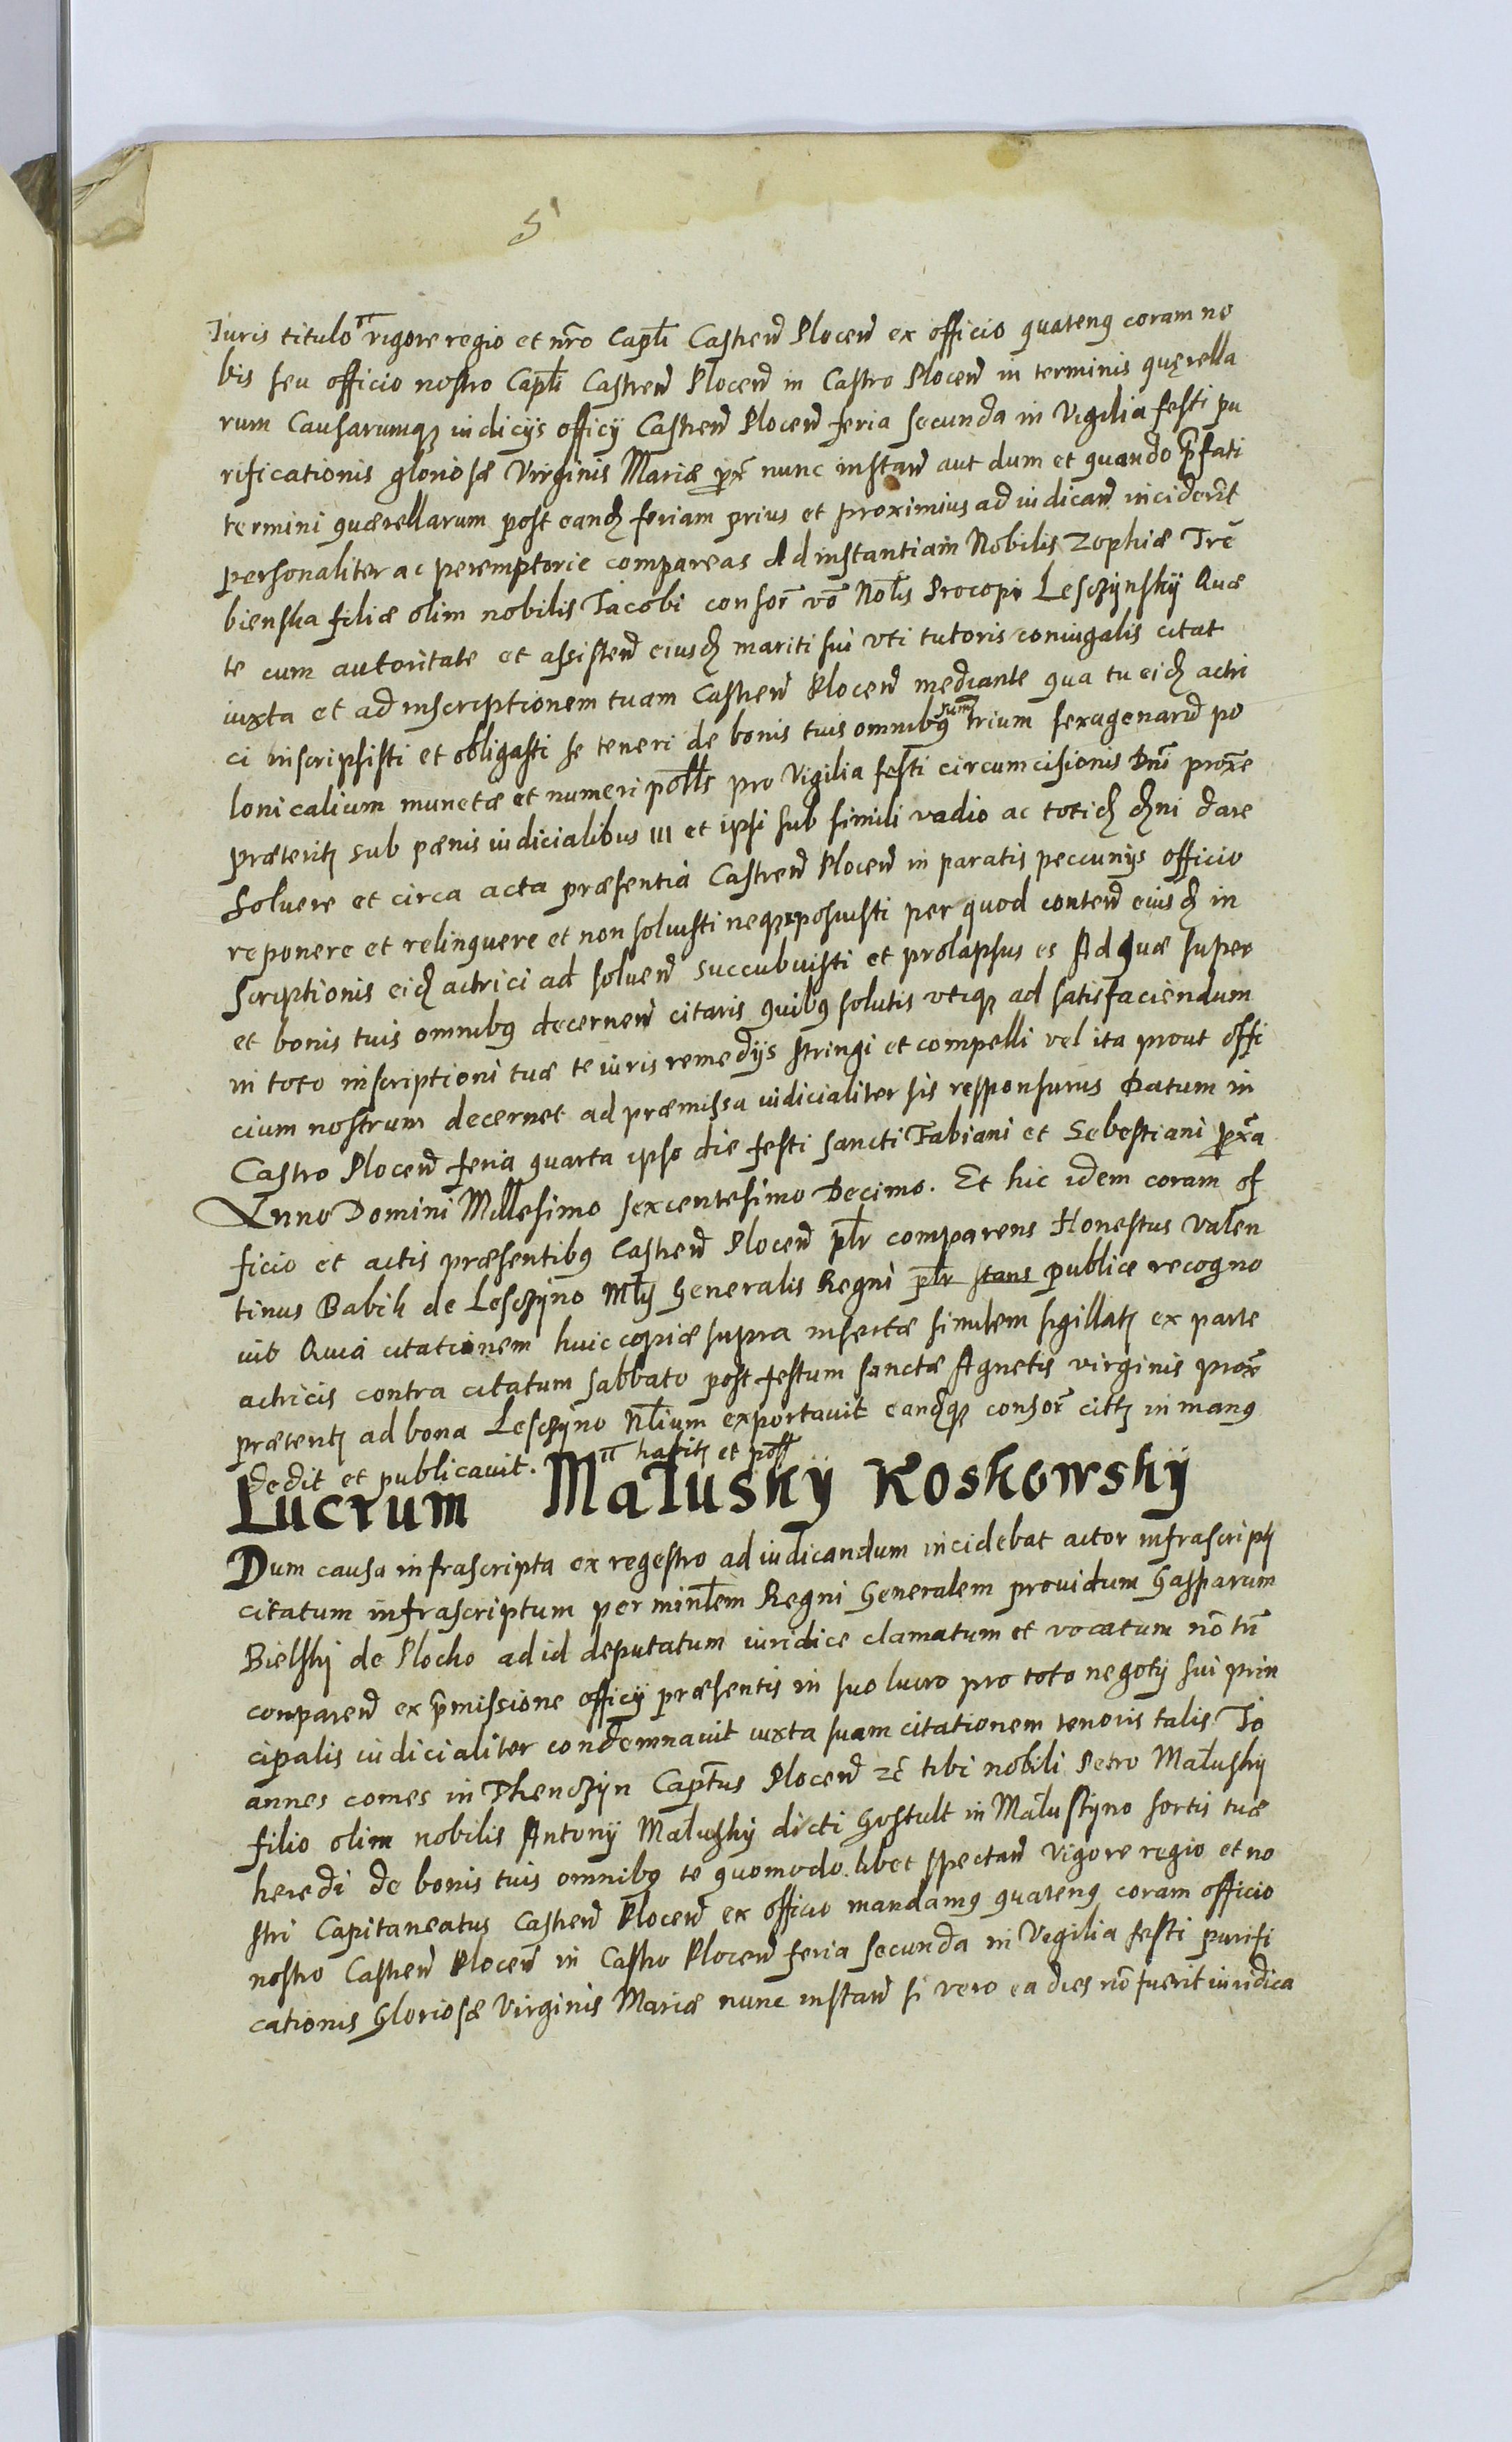 5
Iuris titulo rigore regio et nr̃o Capt̃li Castren̄ Plocen̄ ex officio quatenq coram no
bis seu officio nostro Capt̃li Castren̄ Plocen̄ in Castro Plocen̄ in terminis quęrella
rum Causarumqȝ iudicijs officij Castren̄ Plocen̄ feria secunda in Vigilia festi pu
rificationis gloriosæ Virginis Mariæ pr̃x nunc instan̄ aut dum et quando p̃fati
termini quærellarum post eandȝ feriam prius et proximius ad iudican̄ inciderĩt
personaliter ac peremptorie compareas Ad instantiam Nobilis Zophiæ Trẽ
bienska filiæ olim nobilis Iacobi consor̃ vo᷉ Nob̃lis Procopi Lesczynskij Quæ
te cum autoritate et assisten̄ eiusdȝ mariti sui vti tutoris coniugalis citat
iuxta et ad inscriptionem tuam Castren̄ Plocen̄ mediante qua tu eidȝ actri
ci inscripsisti et obligasti se teneri de bonis tuis omnibq sum̃ trium sexagenarũ po
lonicalium munetæ et numeri poll̃s pro Vigilia festi circumcisionis Dnĩ prox̃e
præteritȝ sub pænis iudicialibus III et ipsi sub simili vadio ac totidȝ dȝni dare
Soluere et circa acta præsentia Castren̄ Plocen̄ in paratis peccunijs officio
reponere et relinquere et non soluisti neqȝ reposuisti per quod conten̄ eiusdȝ in
scriptionis eidȝ actrici ad soluen̄ succubuisti et prolapsus es Ad quæ super
et bonis tuis omnibq decernen̄ citaris quibq solutis vtiqȝ ad satisfaciendum
in toto inscriptioni tuæ te iuris remedijs stringi et compelli vel ita prout offi
cium nostrum decernet ad præmissa iudicialiter sis responsurus Datum in
Castro Plocen̄ feria quarta ipso die festi sancti Fabiani et Sebestiani pr̃xa
Anno Domini Millesimo sexcentesimo Decimo. Et hic idem coram of
ficio et actis præsentibq Castren̄ Plocen̄ pl̃r comparens Honestus Valen
tinus Babik de Lesczyno Mlȝ Generalis Regni pl̃r stans publice recogno
uit Quia citationem huic copiæ supra insertæ similem sigillatȝ ex parte
actricis contra citatum sabbato post festum sanctæ Agnetis virginis prox̃
præteritȝ ad bona Lesczyno Nl̃ium exportauit eandqȝ consor̃ cittȝ in manq
dedit et publicauit. habitȝ et poss̃
Lucrum Malusky Koskowsky
Dum causa infrascripta ex regestro ad iudicandum incidebat actor infrascriptȝ
citatum infrascriptum per minl̃em Regni Generalem prouidum Gasparum
Bielski de Plocko ad id deputatum iuridice clamatum et vocatum nõ tñ
comparen̄ ex p̃missione officij præsentis in suo lucro pro toto negotij sui prin
cipalis iudicialiter condemnauit iuxta suam citationem tenoris talis Io
annes comes in Thenczyn Capt̃us Plocen̄ zc̃ tibi nobili Petro Maluskij
filio olim nobilis Antonij Maluskij dicti Gostult in Malustyno sortis tuæ
heredi de bonis tuis omnibq te quomodo libet spectan̄ Vigore regio et no
stri Capitaneatus Castren̄ Plocen̄ ex officio mandamq quatenq coram officio
nostro Castren̄ Plocen̄ in Castro Plocen̄ feria secunda in Vigilia festi purifi
cationis Gloriosæ Virginis Mariæ nunc instan̄ si vero ea dies nõ fuerit iuridica